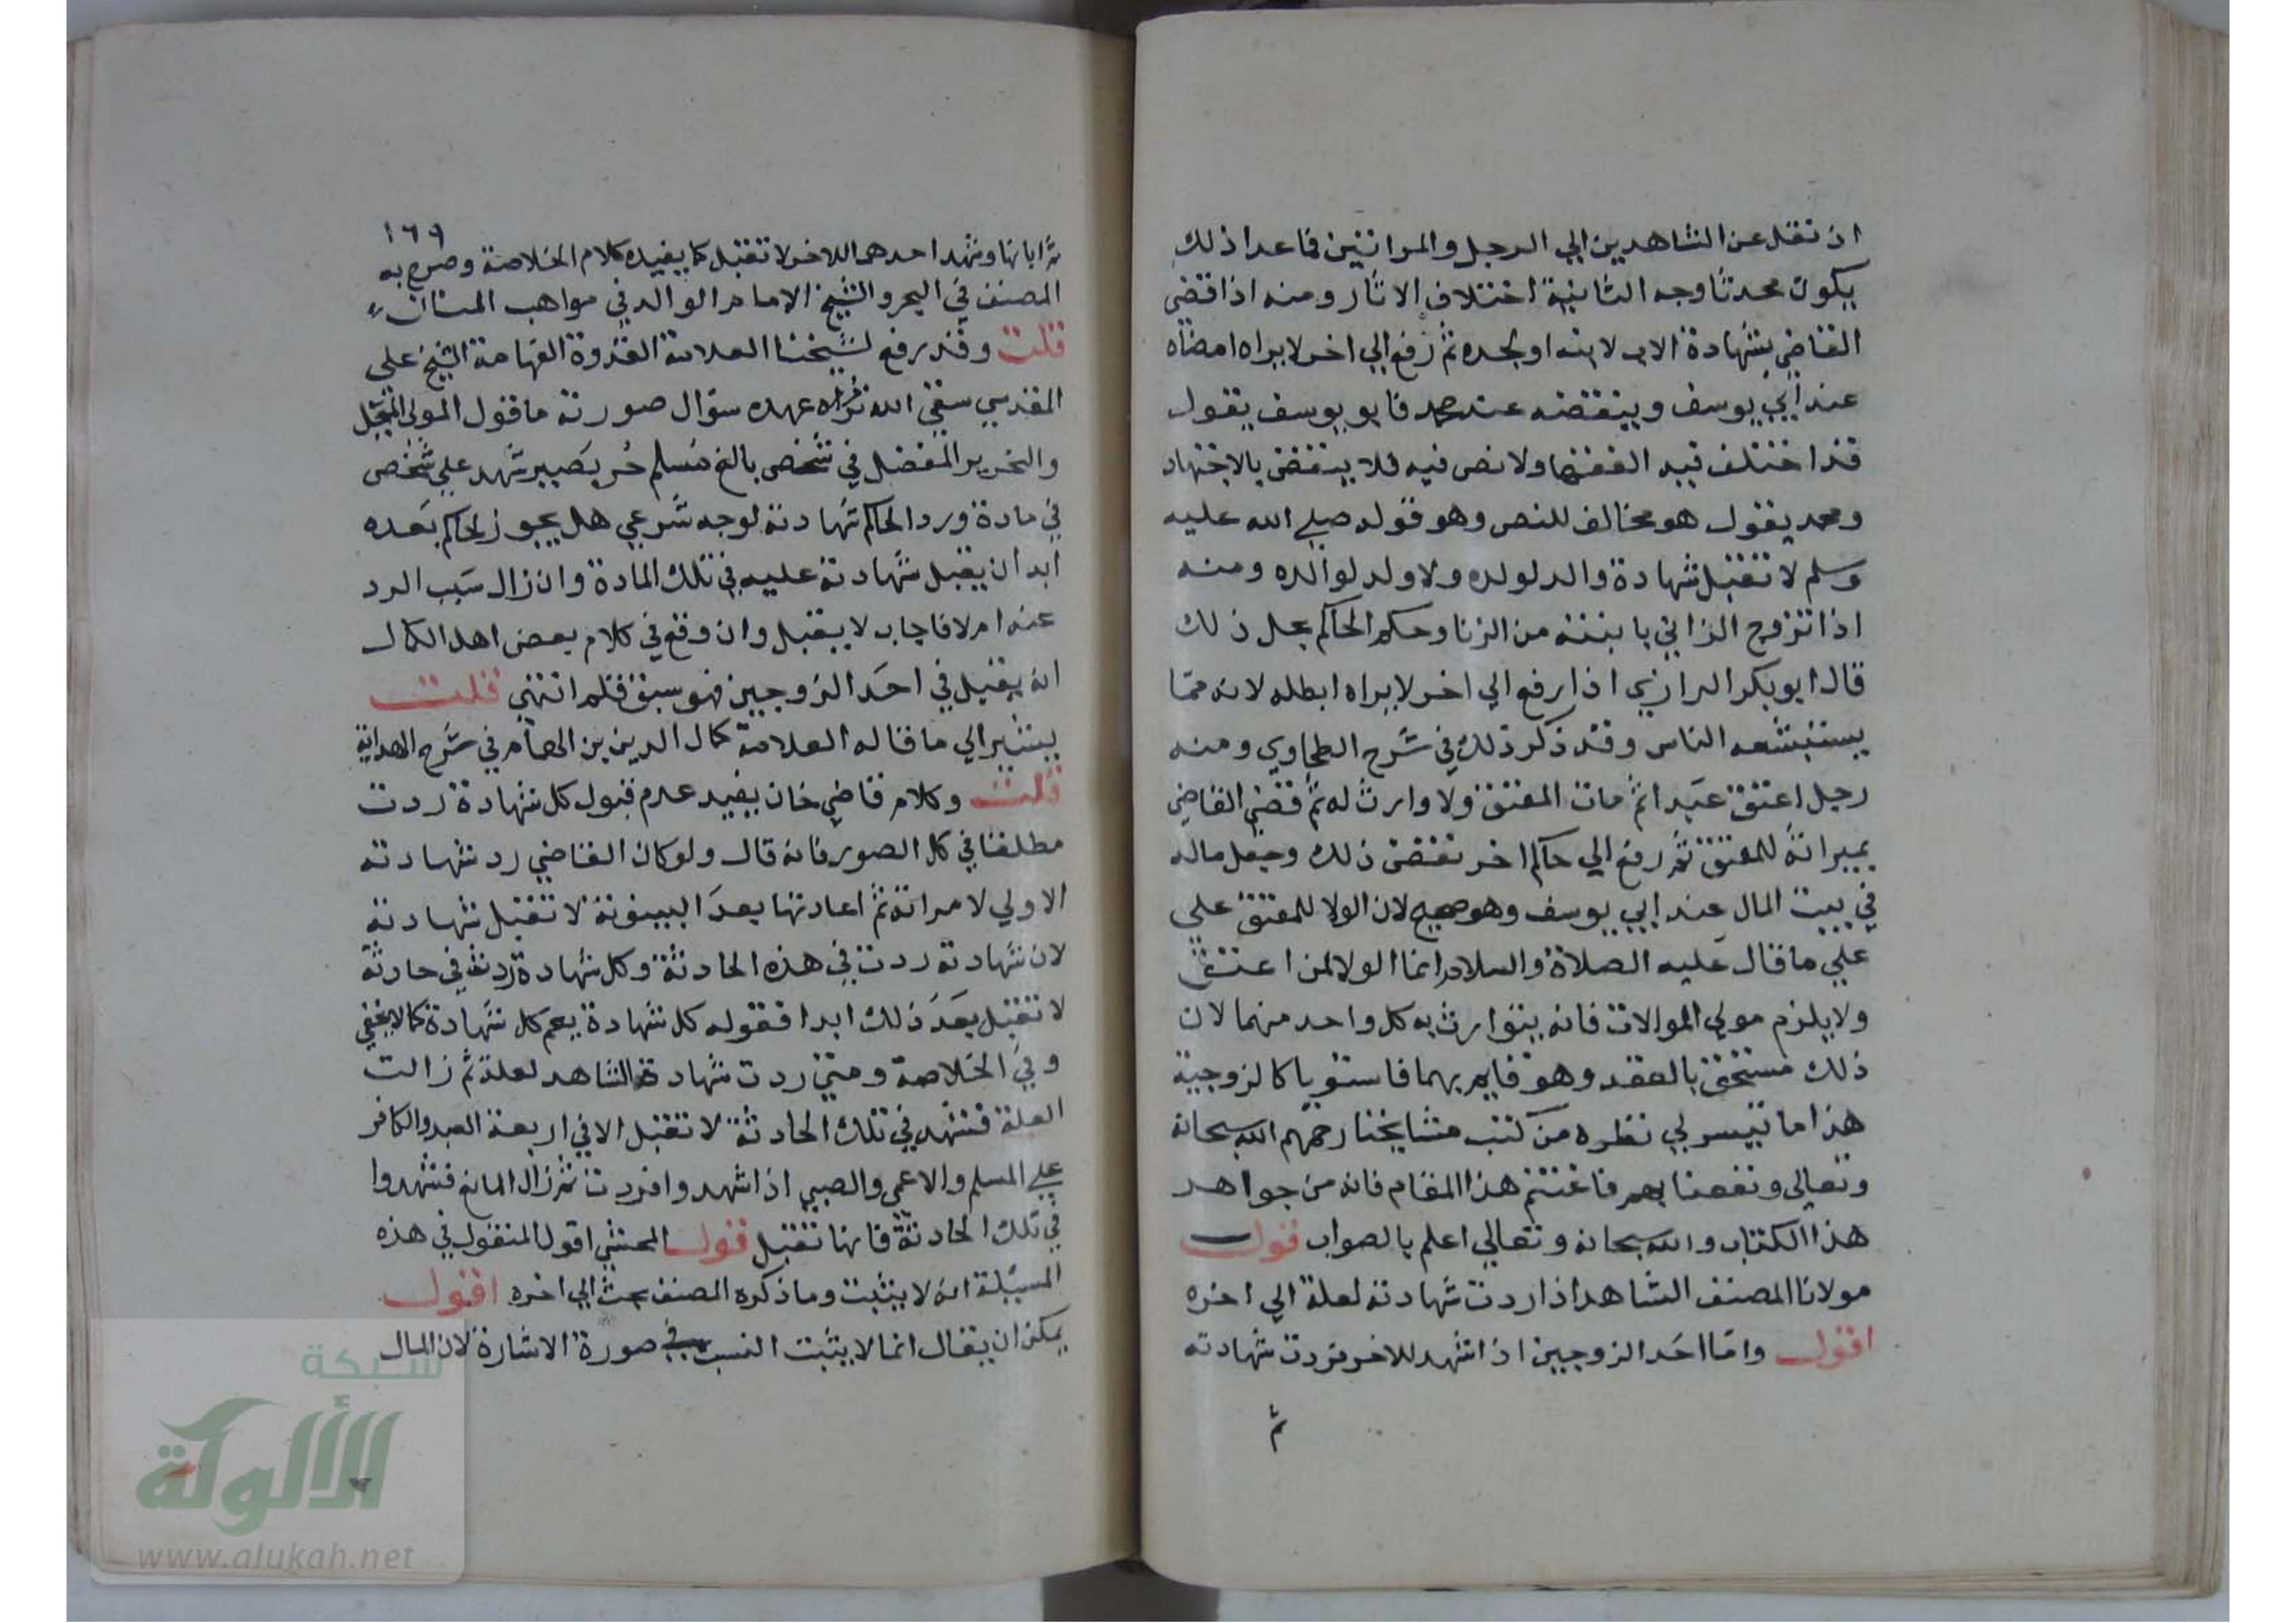 ان نقل عن الشاهدين الي الرجل والمراتين فما عدا ذلك
يكون محدثا وجه الثانية اختلاف الاثار ومنه اذا قضى
القاضي بشهادة الاب لابنه او لجده ثم رفع الي اخر لا يراه امضاه
عند ابي يوسف وينقضه عند محمد فابو يوسف يقول
قد اختلف فيه الفقها ولا نص فيه فلا ينقض بالاجتهاد
ومحمد يقول هو مخالف للنص وهو قوله صلي الله عليه
وسلم لا تقبل شهادة والد لولده ولا ولد لوالده ومنه
اذا تزوج الزاني بابنته من الزنا وحكم الحاكم بحل ذلك
قال ابو بكر الرازي اذا رفع الي اخر لا يراه ابطله لانه مما
يستبشعه الناس وقد ذكر ذلك في شرح الطحاوي ومنه
رجل اعتق عبدا ثم مات المعتق ولا وارث له ثم قضي القاضي
بميراثه للمعتق ثم رفع الي حاكم اخر نقض ذلك وجعل ماله
في بيت المال عند ابي يوسف وهو صحيح لان الولا للمعتق علي
علي ما قال عليه الصلاة والسلام انما الولا لمن اعتق
ولا يلزم مولي الموالات فانه يتوارث به كل واحد منهما لان
ذلك مستحق بالعقد وهو قايم بهما فاستويا كالزوجية
هذا ما تيسر لي نظره من كتب مشايخنا رحمهم الله سبحانه
وتعالي ونفعنا بهم فاغتنم هذا المقام فانه من جواهر
هذا الكتاب والله سبحانه وتعالي اعلم بالصواب قولــ
مولانا المصنف الشاهد اذا ردت شهادته لعلة الي اخره
اقول واما احد الزوجين اذا شهد للاخر فردت شهادته
ثم
١٦٩
ثم ابانها وشهد احدهما للاخر لا تقبل كما يفيده كلام الخلاصة وصرح به
المصنف في البحر والشيخ الامام الوالد في مواهب المنان
قلت وقد رفع لشيخنا العلامة القدوة الفهامة الشيخ علي
المقدسي سقي الله ثراه عهده سؤال صورته ما قول المولى المبجل
والنحرير المفضل في شخص بالغ مسلم حر بصير شهد علي شخص
في مادة ورد الحاكم شهادته لوجه شرعي هل يجوز لحاكم بعده
ابدا ان يقبل شهادته عليه في تلك المادة وان زال سبب الرد
عنه ام لا فاجاب لا يقبل وان وقع في كلام بعض اهل الكمال
انه يقبل في احد الزوجين فهو سبق قلم انتهي قلت
يشير الي ما قاله العلامة كمال الدين بن الهمام في شرح الهداية
قلت وكلام قاضي خان يفيد عدم قبول كل شهادة ردت
مطلقا في كل الصور فانه قال ولو كان القاضي رد شهادته
الاولي لامراته ثم اعادتها بعد البينونة لا تقبل شهادته
لان شهادته ردت في هذه الحادثة وكل شهادة ردت في حادثة
لا تقبل بعد ذلك ابدا فقوله كل شهادة يعم كل شهادة كما لا يخفي
وفي الخلاصة ومتي ردت شهادة الشاهد لعلة ثم زالت
العلة فشهد في تلك الحادثة لا تقبل الا في اربعة العبد والكافر
علي المسلم والاعمي والصبي اذا شهدوا فردت ثم زال المانع فشهدوا
في تلك الحادثة فانها تقبل قولــ المحشي اقول المنقول في هذه
المسيلة انه لا يثبت وما ذكره المصنف بحث الي اخره اقول
يمكن ان يقال انما لا يثبت النسب في صورة الاشارة لان المال
شبكة
الألوكة
www.alukah.net